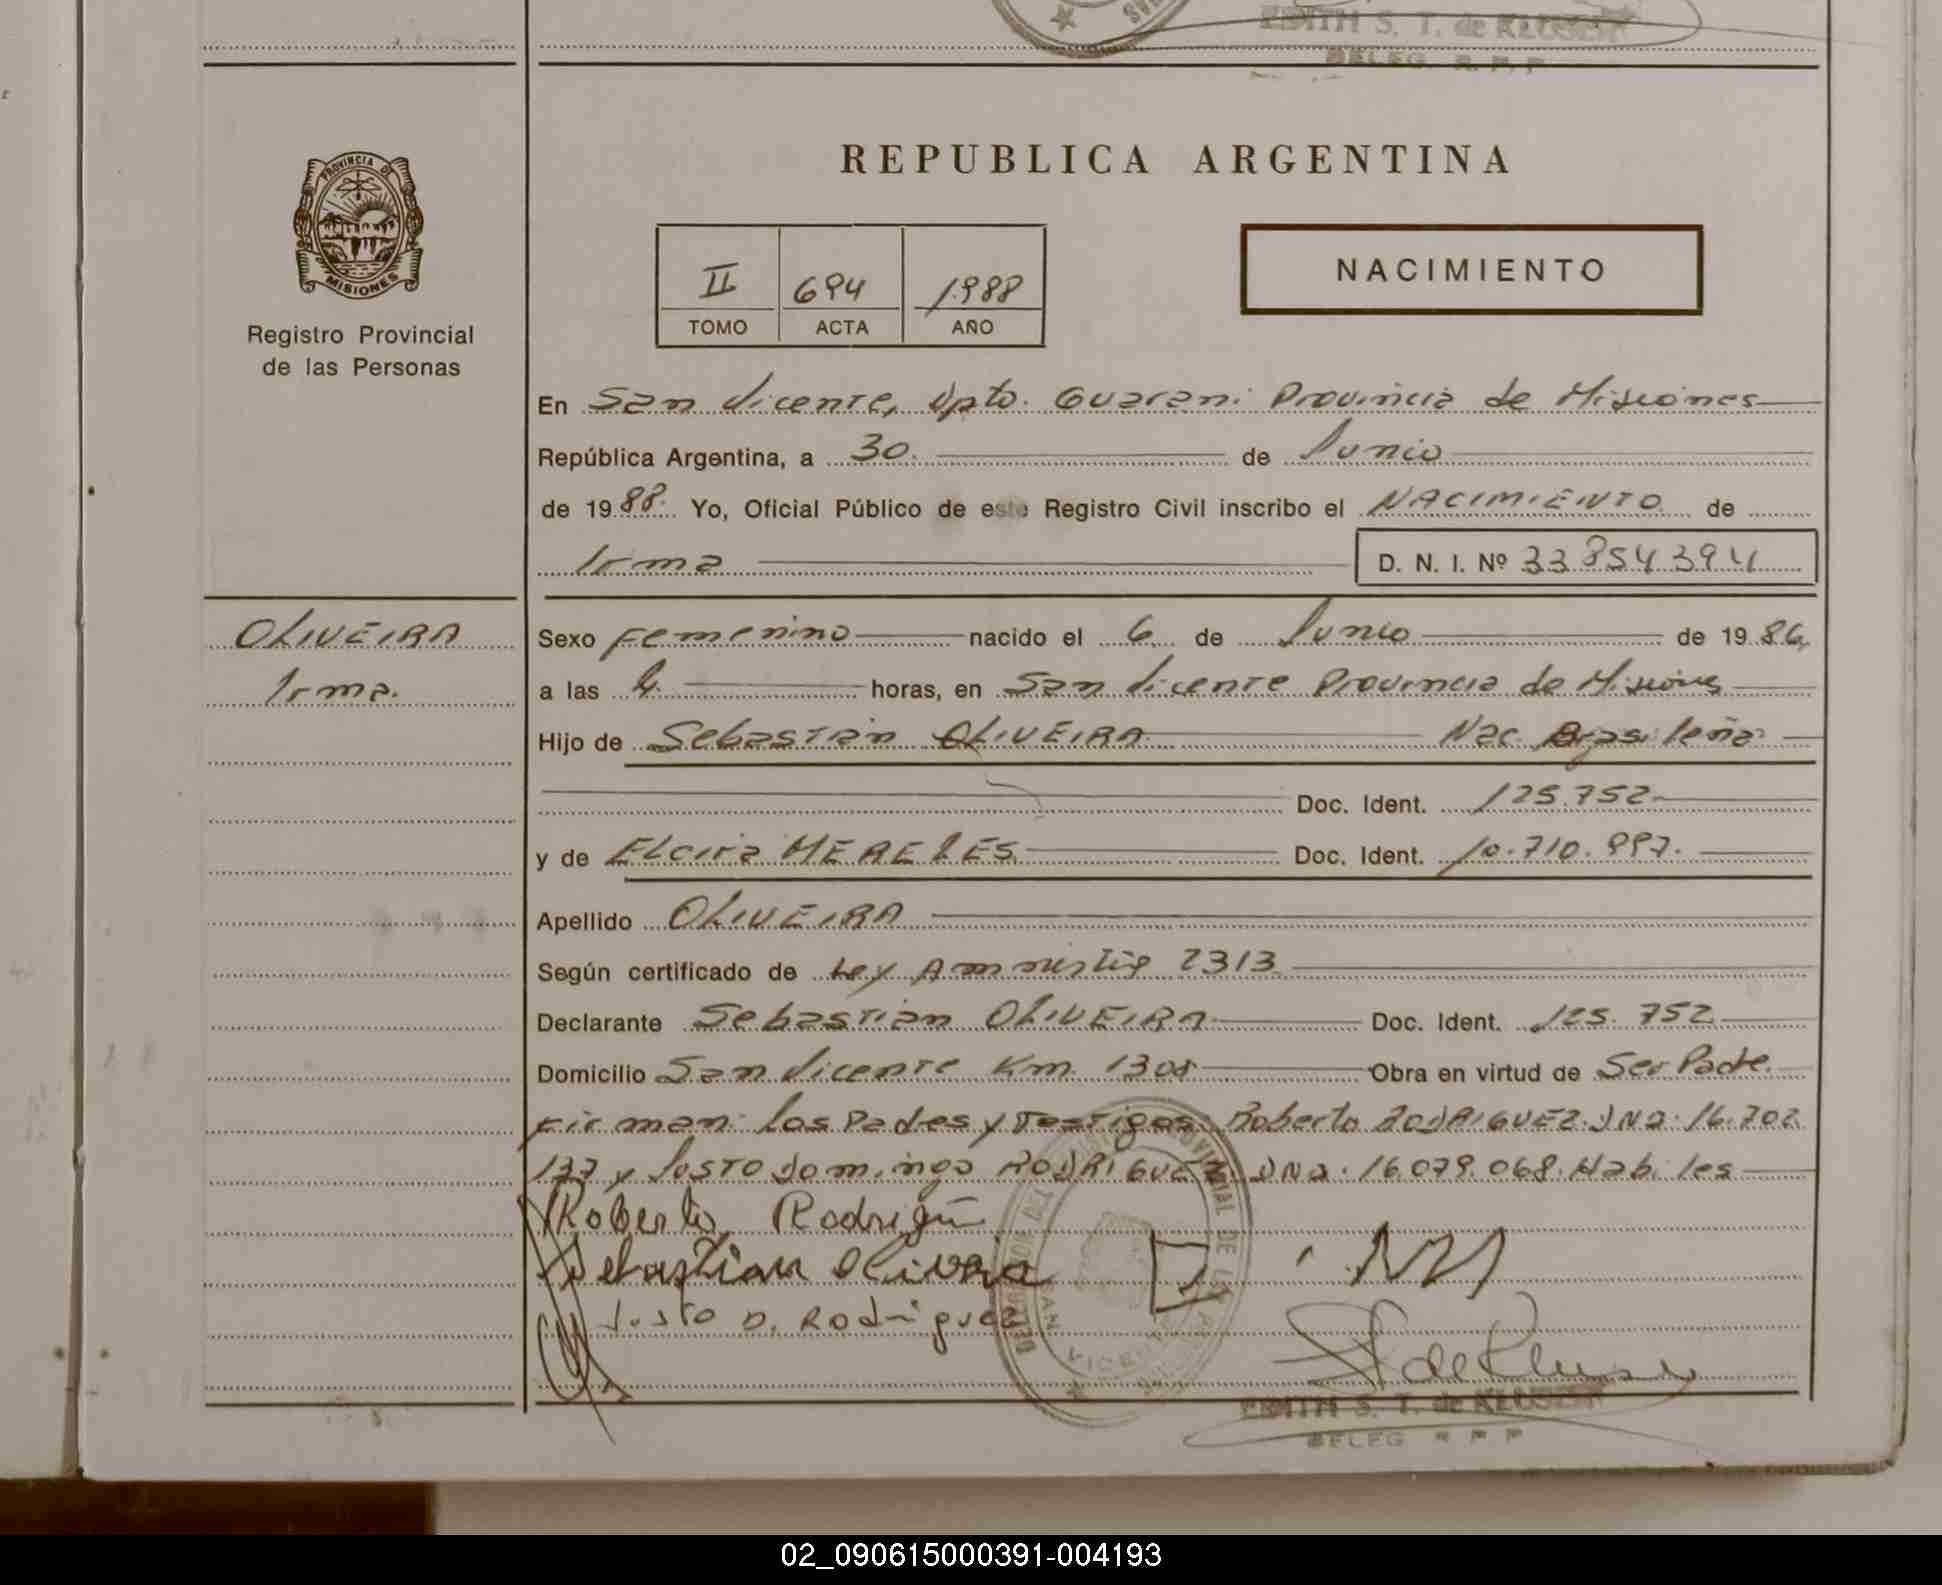 EDITH S. T. de KLUSER
DELEG. R. P. P.
PROVINCIA DE
MISIONES
Registro Provincial
de las Personas
REPUBLICA ARGENTINA
II 694 1988
TOMO ACTA AÑO
NACIMIENTO
En San Vicente, Dpto. Guarani Provincia de Misiones
República Argentina, a 30. de Junio
de 1988. Yo, Oficial Público de este Registro Civil inscribo el NACIMIENTO de
Irma D. N. I. Nº 33854394
OLIVEIRA
Irma.
Sexo Femenino nacido el 6 de Junio de 1986,
a las 4 horas, en San Vicente Provincia de Misiones
Hijo de Sebastián OLIVEIRA Nac. Brasileña
Doc. Ident. 125.752
y de Elcira MERELES Doc. Ident. 10.710.997.
Apellido OLIVEIRA
Según certificado de Ley Amnistia 2313
Declarante Sebastián OLIVEIRA Doc. Ident. 125.752
Domicilio San Vicente Km. 1308 Obra en virtud de Ser Padre.
Firman: los Padres y Testigos: Roberto RODRIGUEZ. DNI: 16.702
137 y Justo Domingo RODRIGUEZ DNI: 16.079.068. Habiles
Roberto Rodrigu
Sebastian Olivera
Justo D. Rodriguez
SAN VICENTE
EDITH S. T. de KLUSER
DELEG R P P
02_090615000391-004193